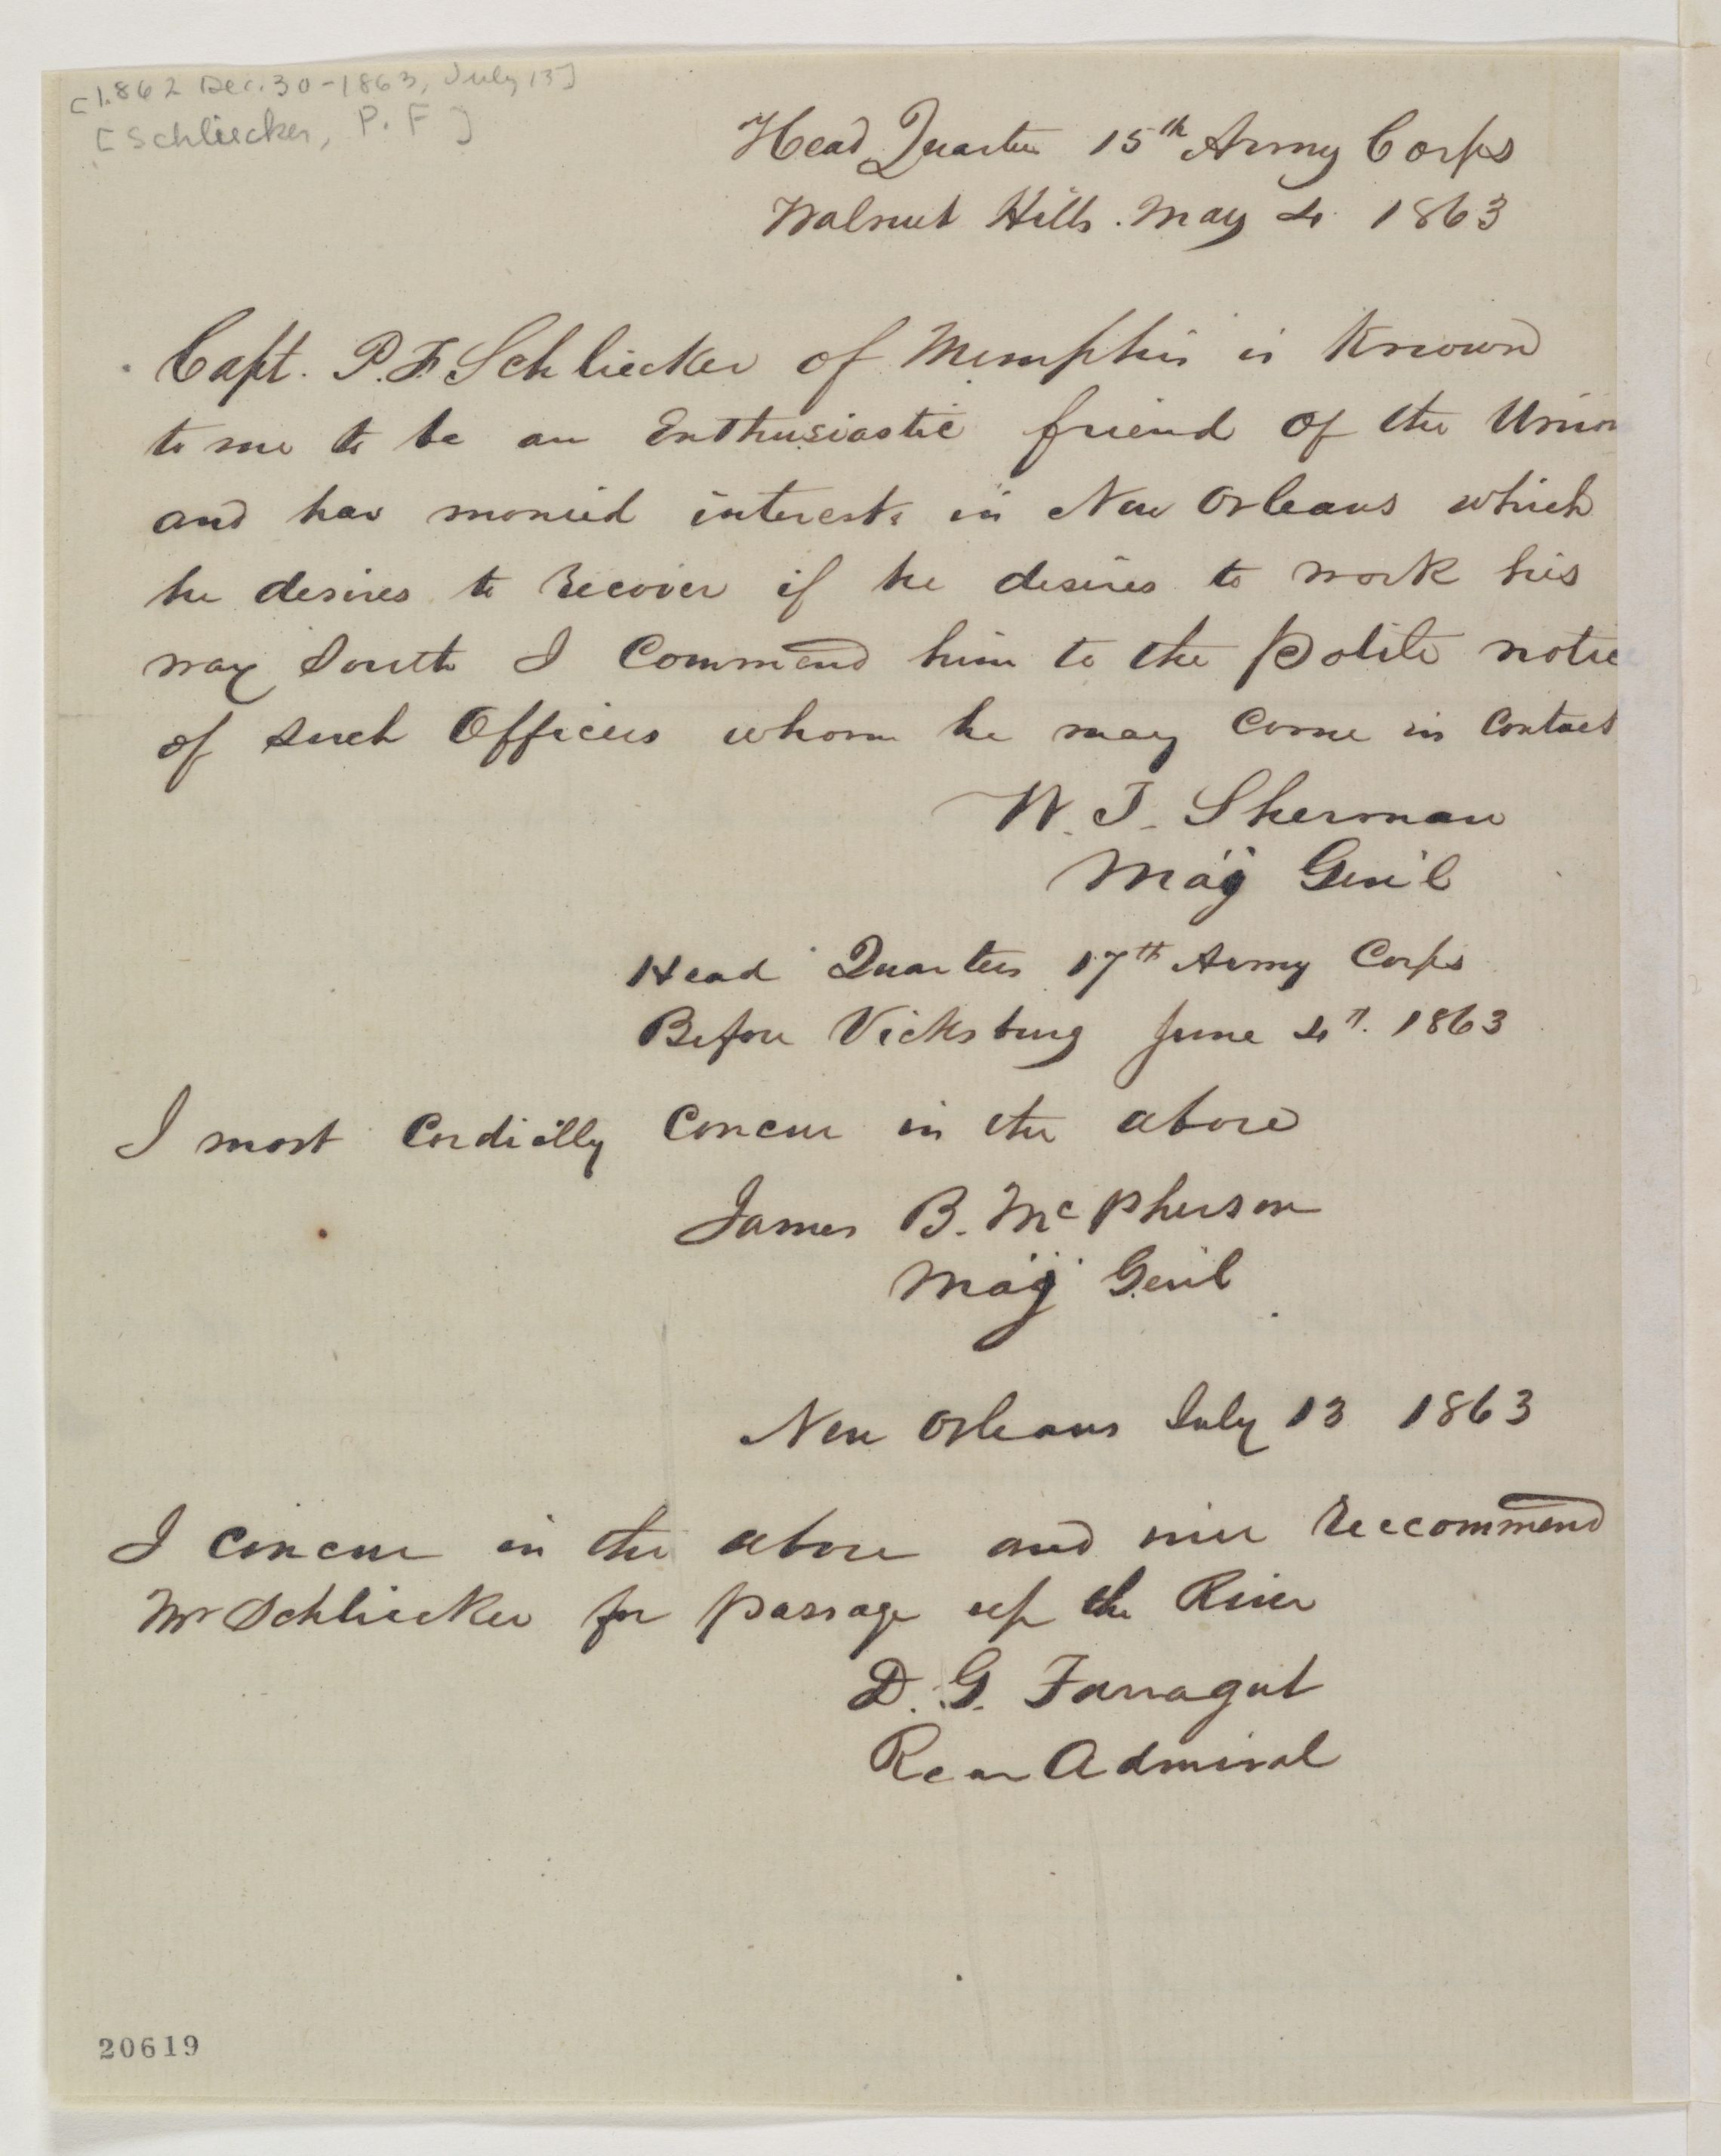 [1862 Dec. 30 - 1863, July 13]
[Schliecker, P. F]
Head Quarters 15th Army Corps
Walnut Hills. May 4 1863
Capt. P. F. Schliecker of Memphis is Known
to me to be an Enthusiastic friend of the Union
and has monied interests in New Orleans which
he desires to Recover if he desires to work his
way South I Commend him to the polite notice
of such Officers whom he may come in Contact
W. T. Sherman
Maj Genl
Head Quarters 17th Army Corps
Before Vicksburg June 4th. 1863
I most Cordially Concur in the above
James B. McPherson
Maj Genl
New Orleans July 13 1863
I Concur in the above and Reccommend
Mr Schliecker for passage up the River
D. G. Farragut
Rear Admiral
20619